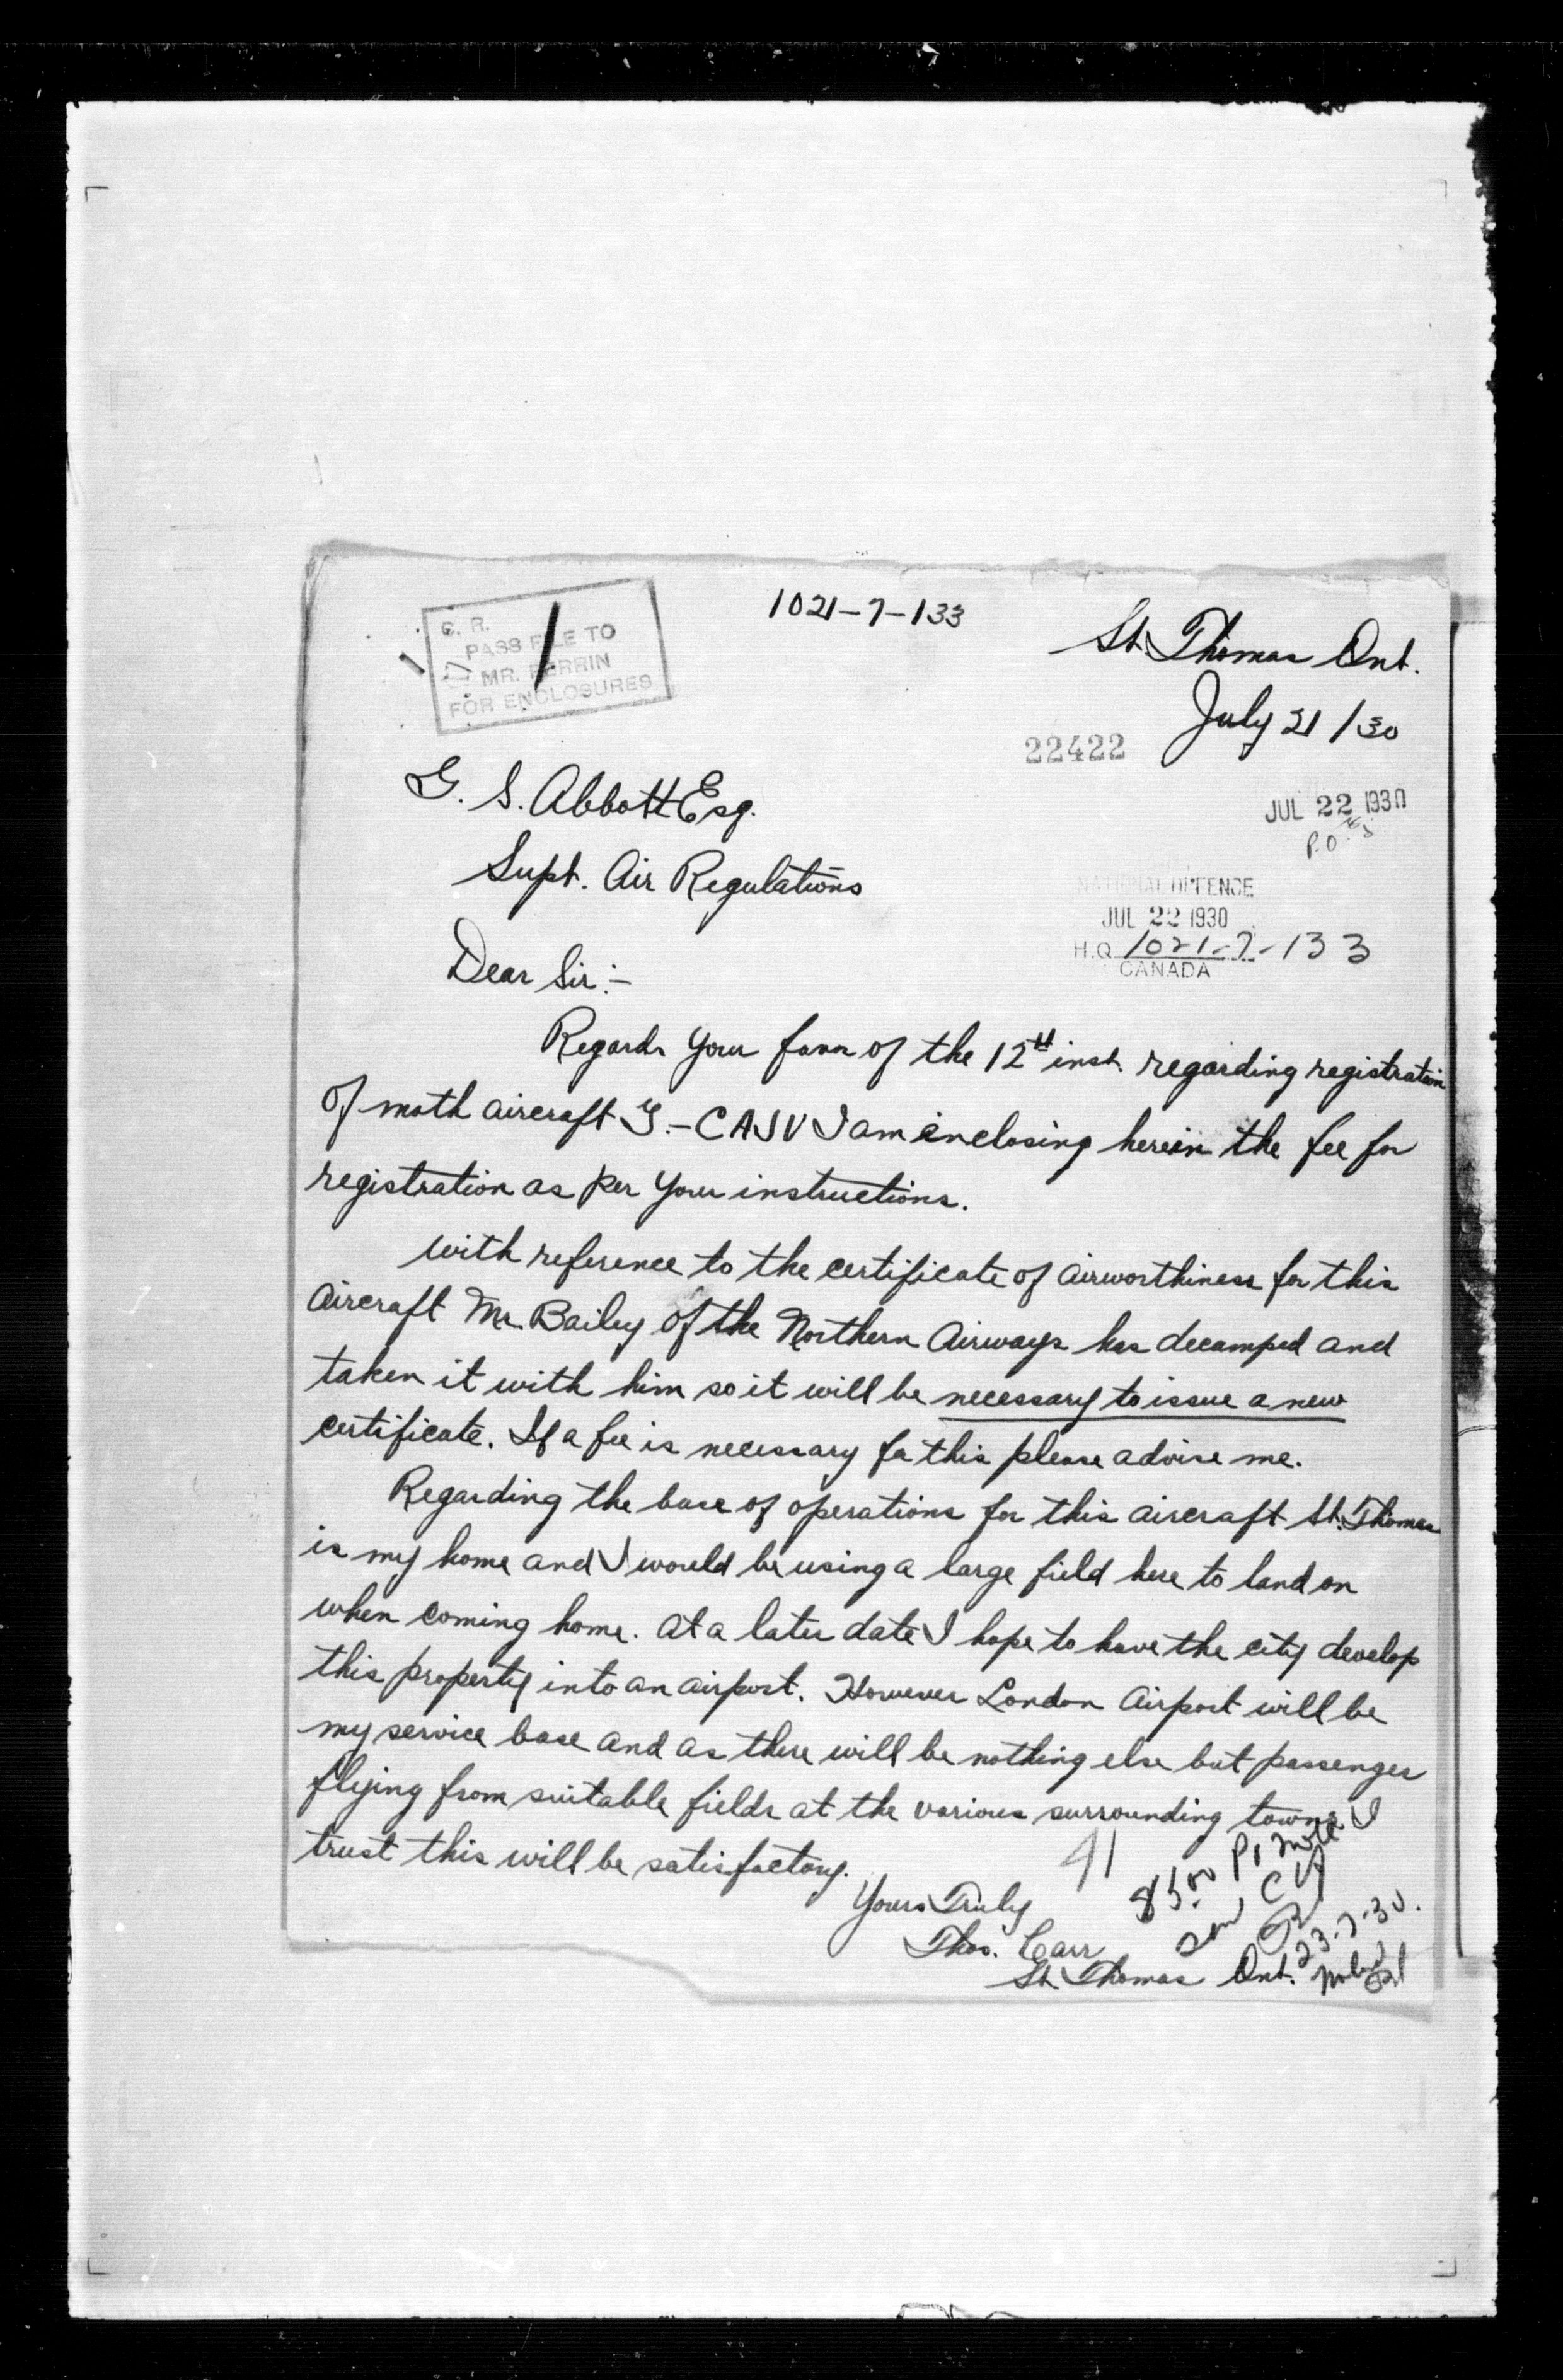 1021-7-133
C. R.
PASS FILE TO
MR. PERRIN
FOR ENCLOSURES
St. Thomas Ont.
July 21/30
22422
JUL 22 1930
P.O.
G. S. Abbott Esq.
Supt. Air Regulations
NATIONAL DEFENCE
JUL 22 1930
H.Q. 1021-7-133
CANADA
Dear Sir:-
Regards your favor of the 12th inst. regarding registration
of moth aircraft G.-CAJV I am enclosing herein the fee for
registration as per your instructions.
with reference to the certificate of airworthiness for this
aircraft Mr. Bailey of the Northern Airways has decamped and
taken it with him so it will be necessary to issue a new
certificate. If a fee is necessary for this please advise me.
Regarding the base of operations for this aircraft St. Thomas
is my home and I would be using a large field here to land on
when coming home. At a later date I hope to have the city develop
this property into an airport. However London Airport will be
my service base and as there will be nothing else but passenger
flying from suitable fields at the various surrounding towns I
trust this will be satisfactory.
41
Yours Truly
Thos. Carr
St. Thomas Ont.
23-7-30.